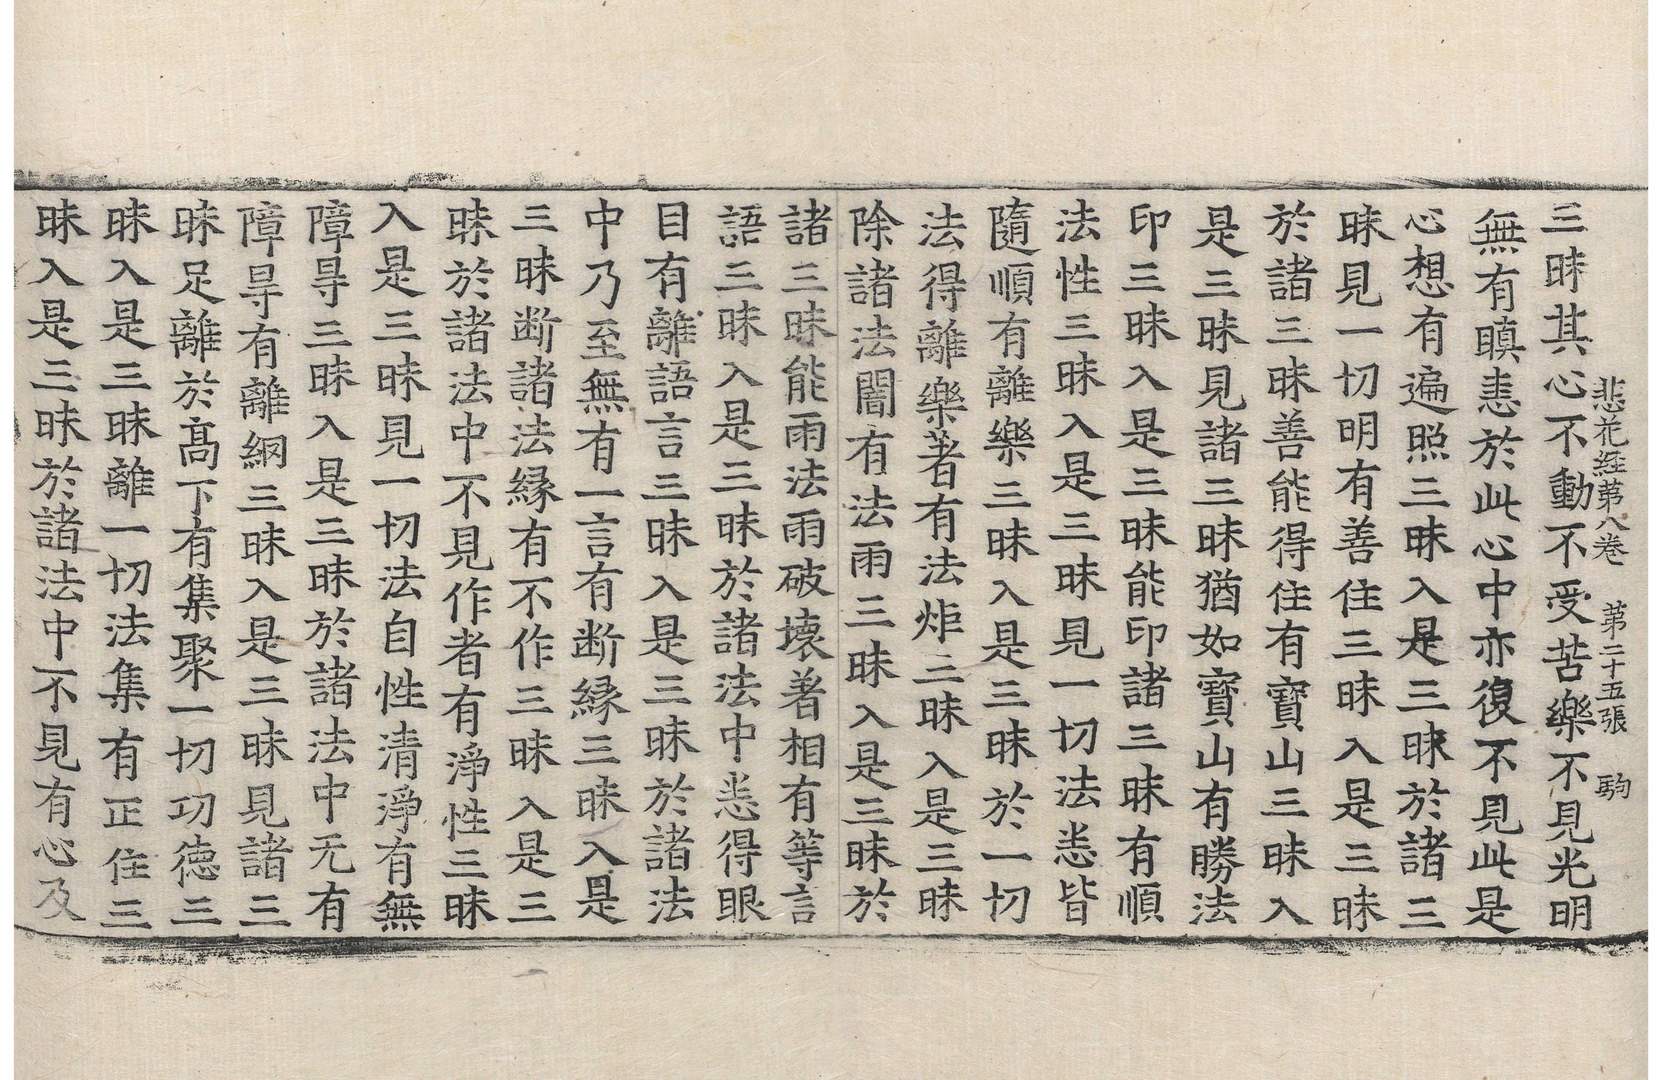 悲花経第八卷　第二十五張　駒
三昧其心不動不受苦樂不見光明
無有瞋恚於此心中亦復不見此是
心想有遍照三昧入是三昧於諸三
昧見一切明有善住三昧入是三昧
於諸三昧善能得住有寶山三昧入
是三昧見諸三昧猶如寶山有勝法
印三昧入是三昧能印諸三昧有順
法性三昧入是三昧見一切法悉皆
隨順有離樂三昧入是三昧於一切
法得離樂著有法炬三昧入是三昧
除諸法闇有法雨三昧入是三昧於
諸三昧能雨法雨破壞著相有等言
語三昧入是三昧於諸法中悉得眼
目有離語言三昧入是三昧於諸法
中乃至無有一言有断緣三昧入是
三昧断諸法緣有不作三昧入是三
昧於諸法中不見作者有淨性三昧
入是三昧見一切法自性清淨有無
障㝵三昧入是三昧於諸法中无有
障㝵有離網三昧入是三昧見諸三
昧足離於髙下有集聚一切功徳三
昧入是三昧離一切法集有正住三
昧入是三昧於諸法中不見有心及